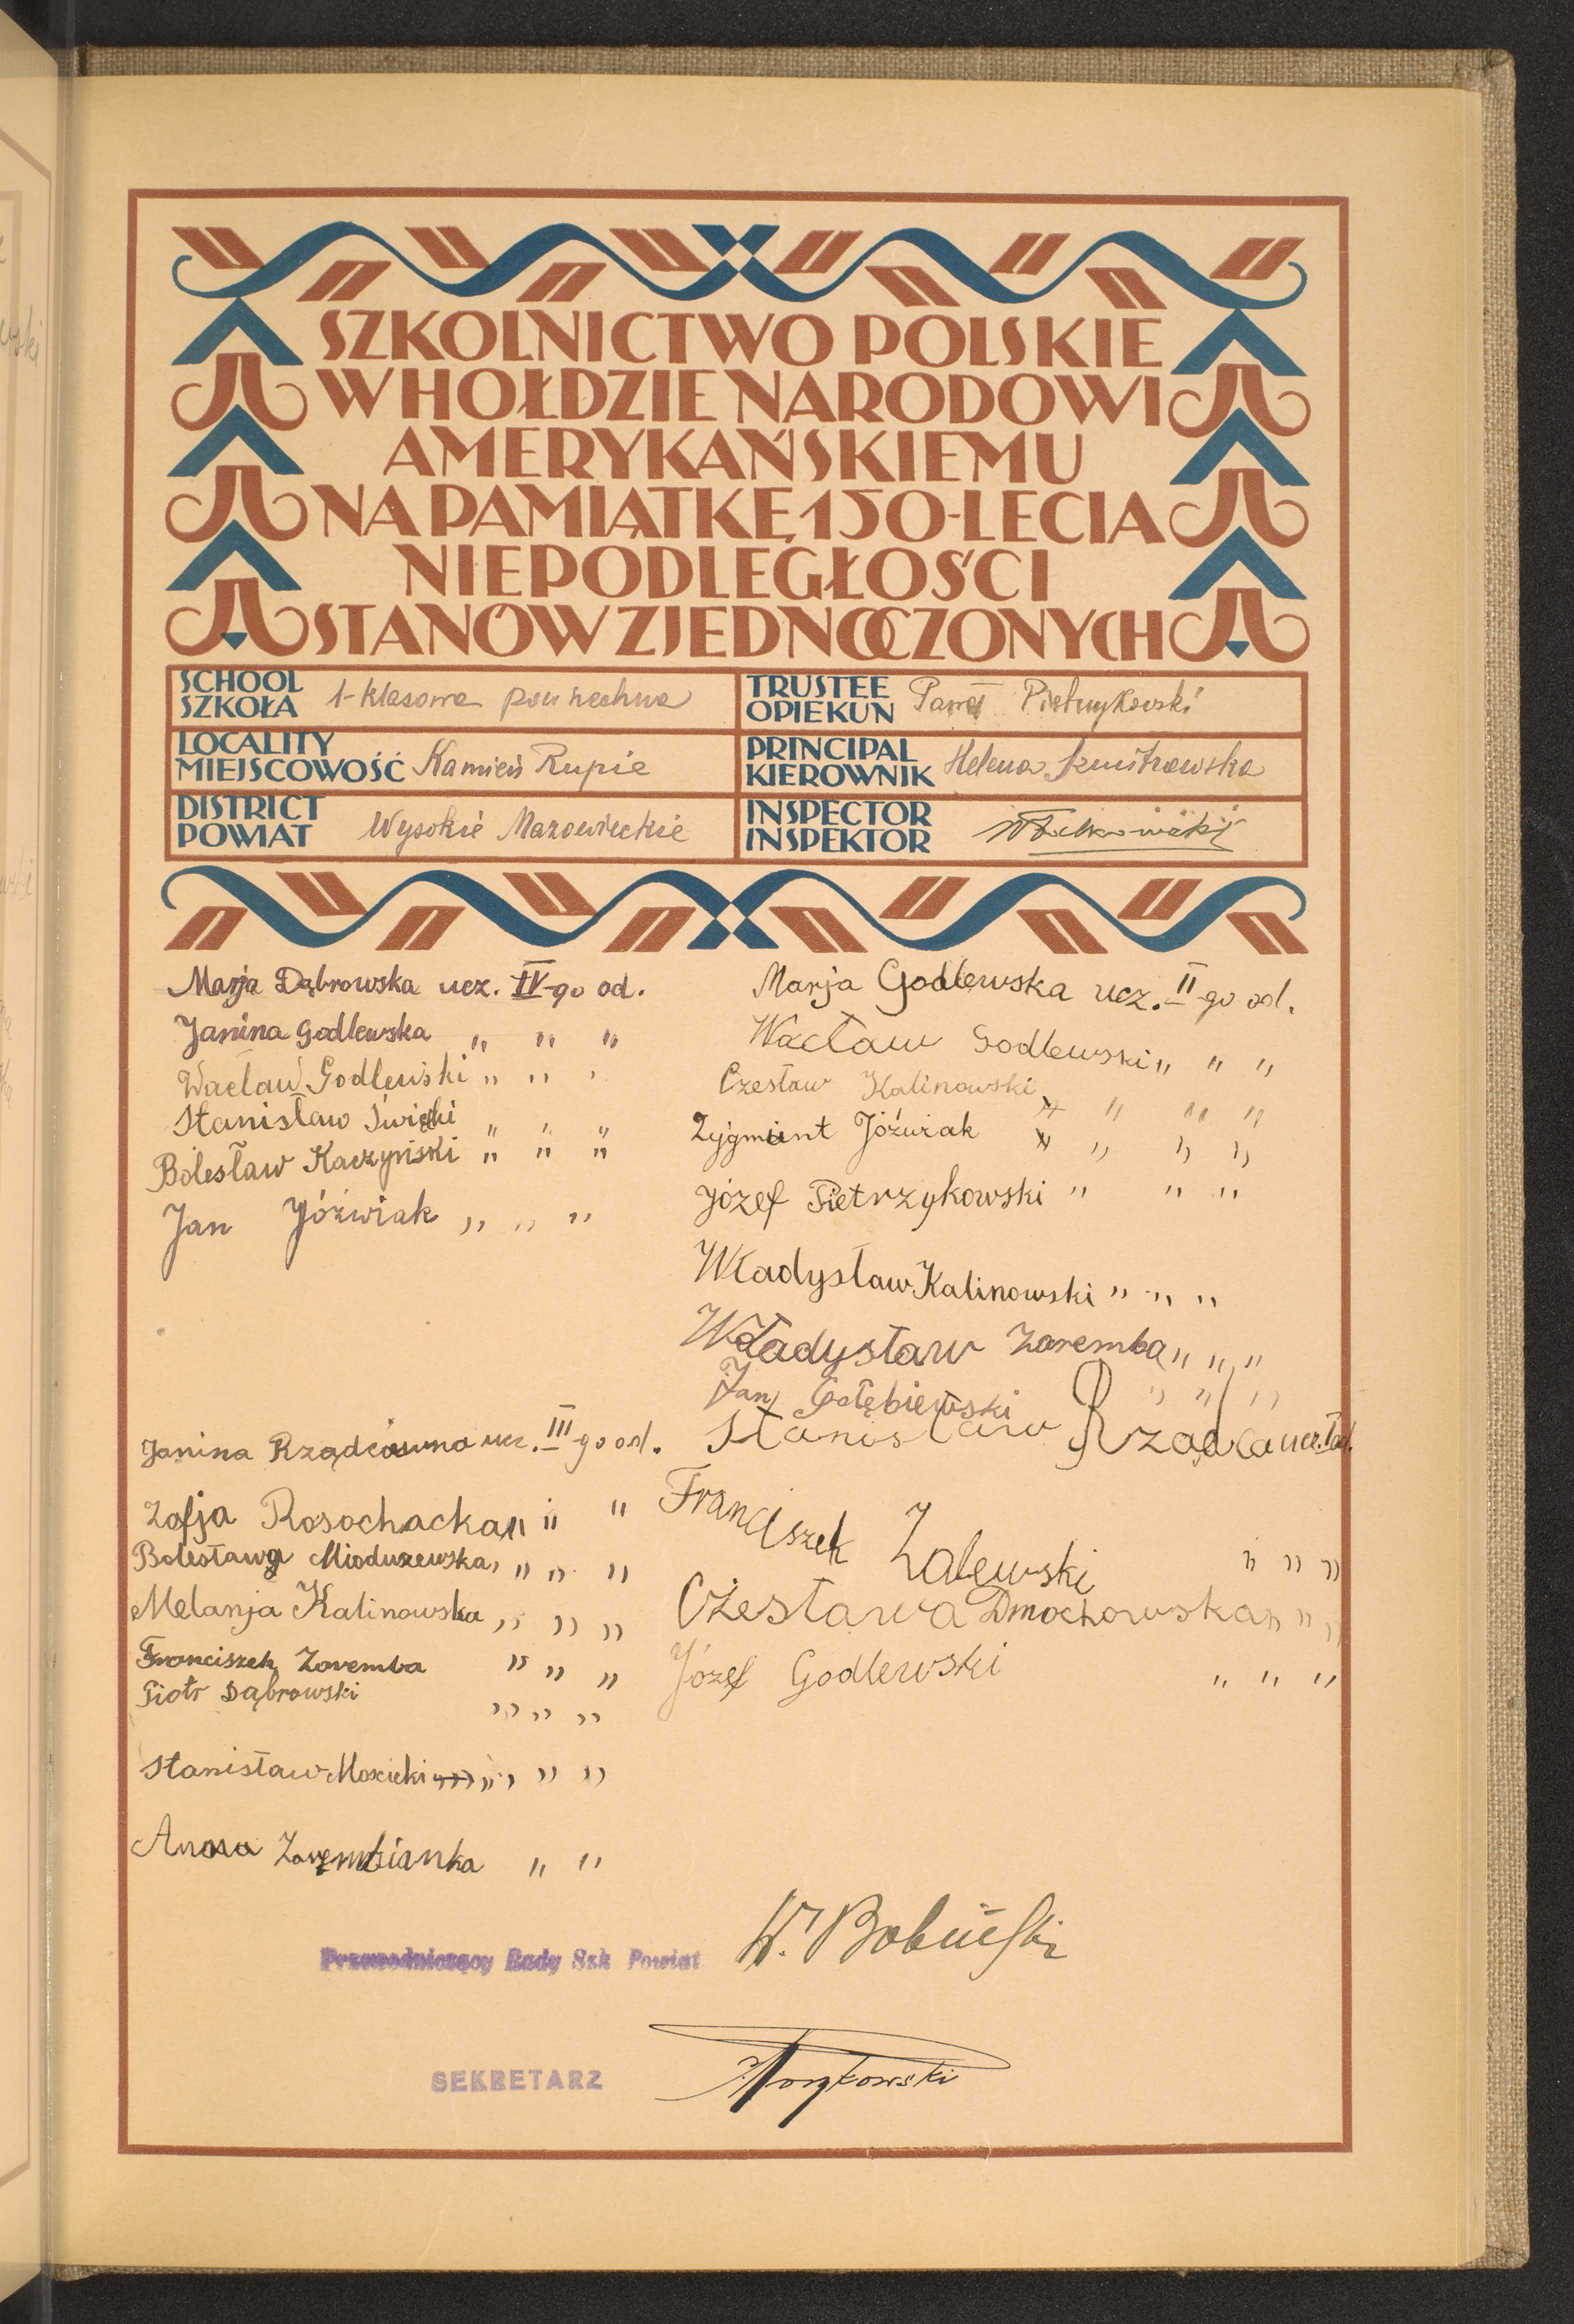 SZKOLNICTWO POLSKIE
W HOŁDZIE NARODOWI
AMERYKAŃSKIEMU
NA PAMIĄTKĘ 150-LECIA
NIEPODLEGŁOŚCI
STANÓW ZJEDNOCZONYCH
SCHOOL
SZKOŁA 1-klasowa powszechna
TRUSTEE
OPIEKUN Paweł Pietrzykowski
LOCALITY
MIEJSCOWOŚĆ Kamień Rupie
PRINCIPAL
KIEROWNIK Helena
DISTRICT
POWIAT Wysokie Mazowieckie
INSPECTOR
INSPEKTOR
Marja Dąbrowska ucz. IV-go od.
Janina Godlewska " " "
Wacław Godlewski " " "
Stanisław Święcki " " "
Bolesław Kaczyński " " "
Jan Jóźwiak " " "
Janina Rządcówna ucz. III-go od.
Zofja Rosochacka " " "
Bolesława Mioduszewska " " "
Melanja Kalinowska " " "
Franciszek Zaremba " " "
Piotr Dąbrowski " " "
Stanisław Mościcki " " "
Anna Zarembianka " "
Marja Godlewska ucz. II-go od.
Wacław Godlewski " " "
Czesław Kalinowski " " "
Zygmunt Jóźwiak " " "
Józef Pietrzykowski " " "
Władysław Kalinowski " " "
Władysław Zaremba " " "
Jan Gołębiewski " " "
Stanisław Rządca ucz. I od.
Franciszek Zalewski " " "
Czesława Dmochowska " " "
Józef Godlewski " " "
Przewodniczący Rady Szk Powiat
W. Bobiński
SEKRETARZ